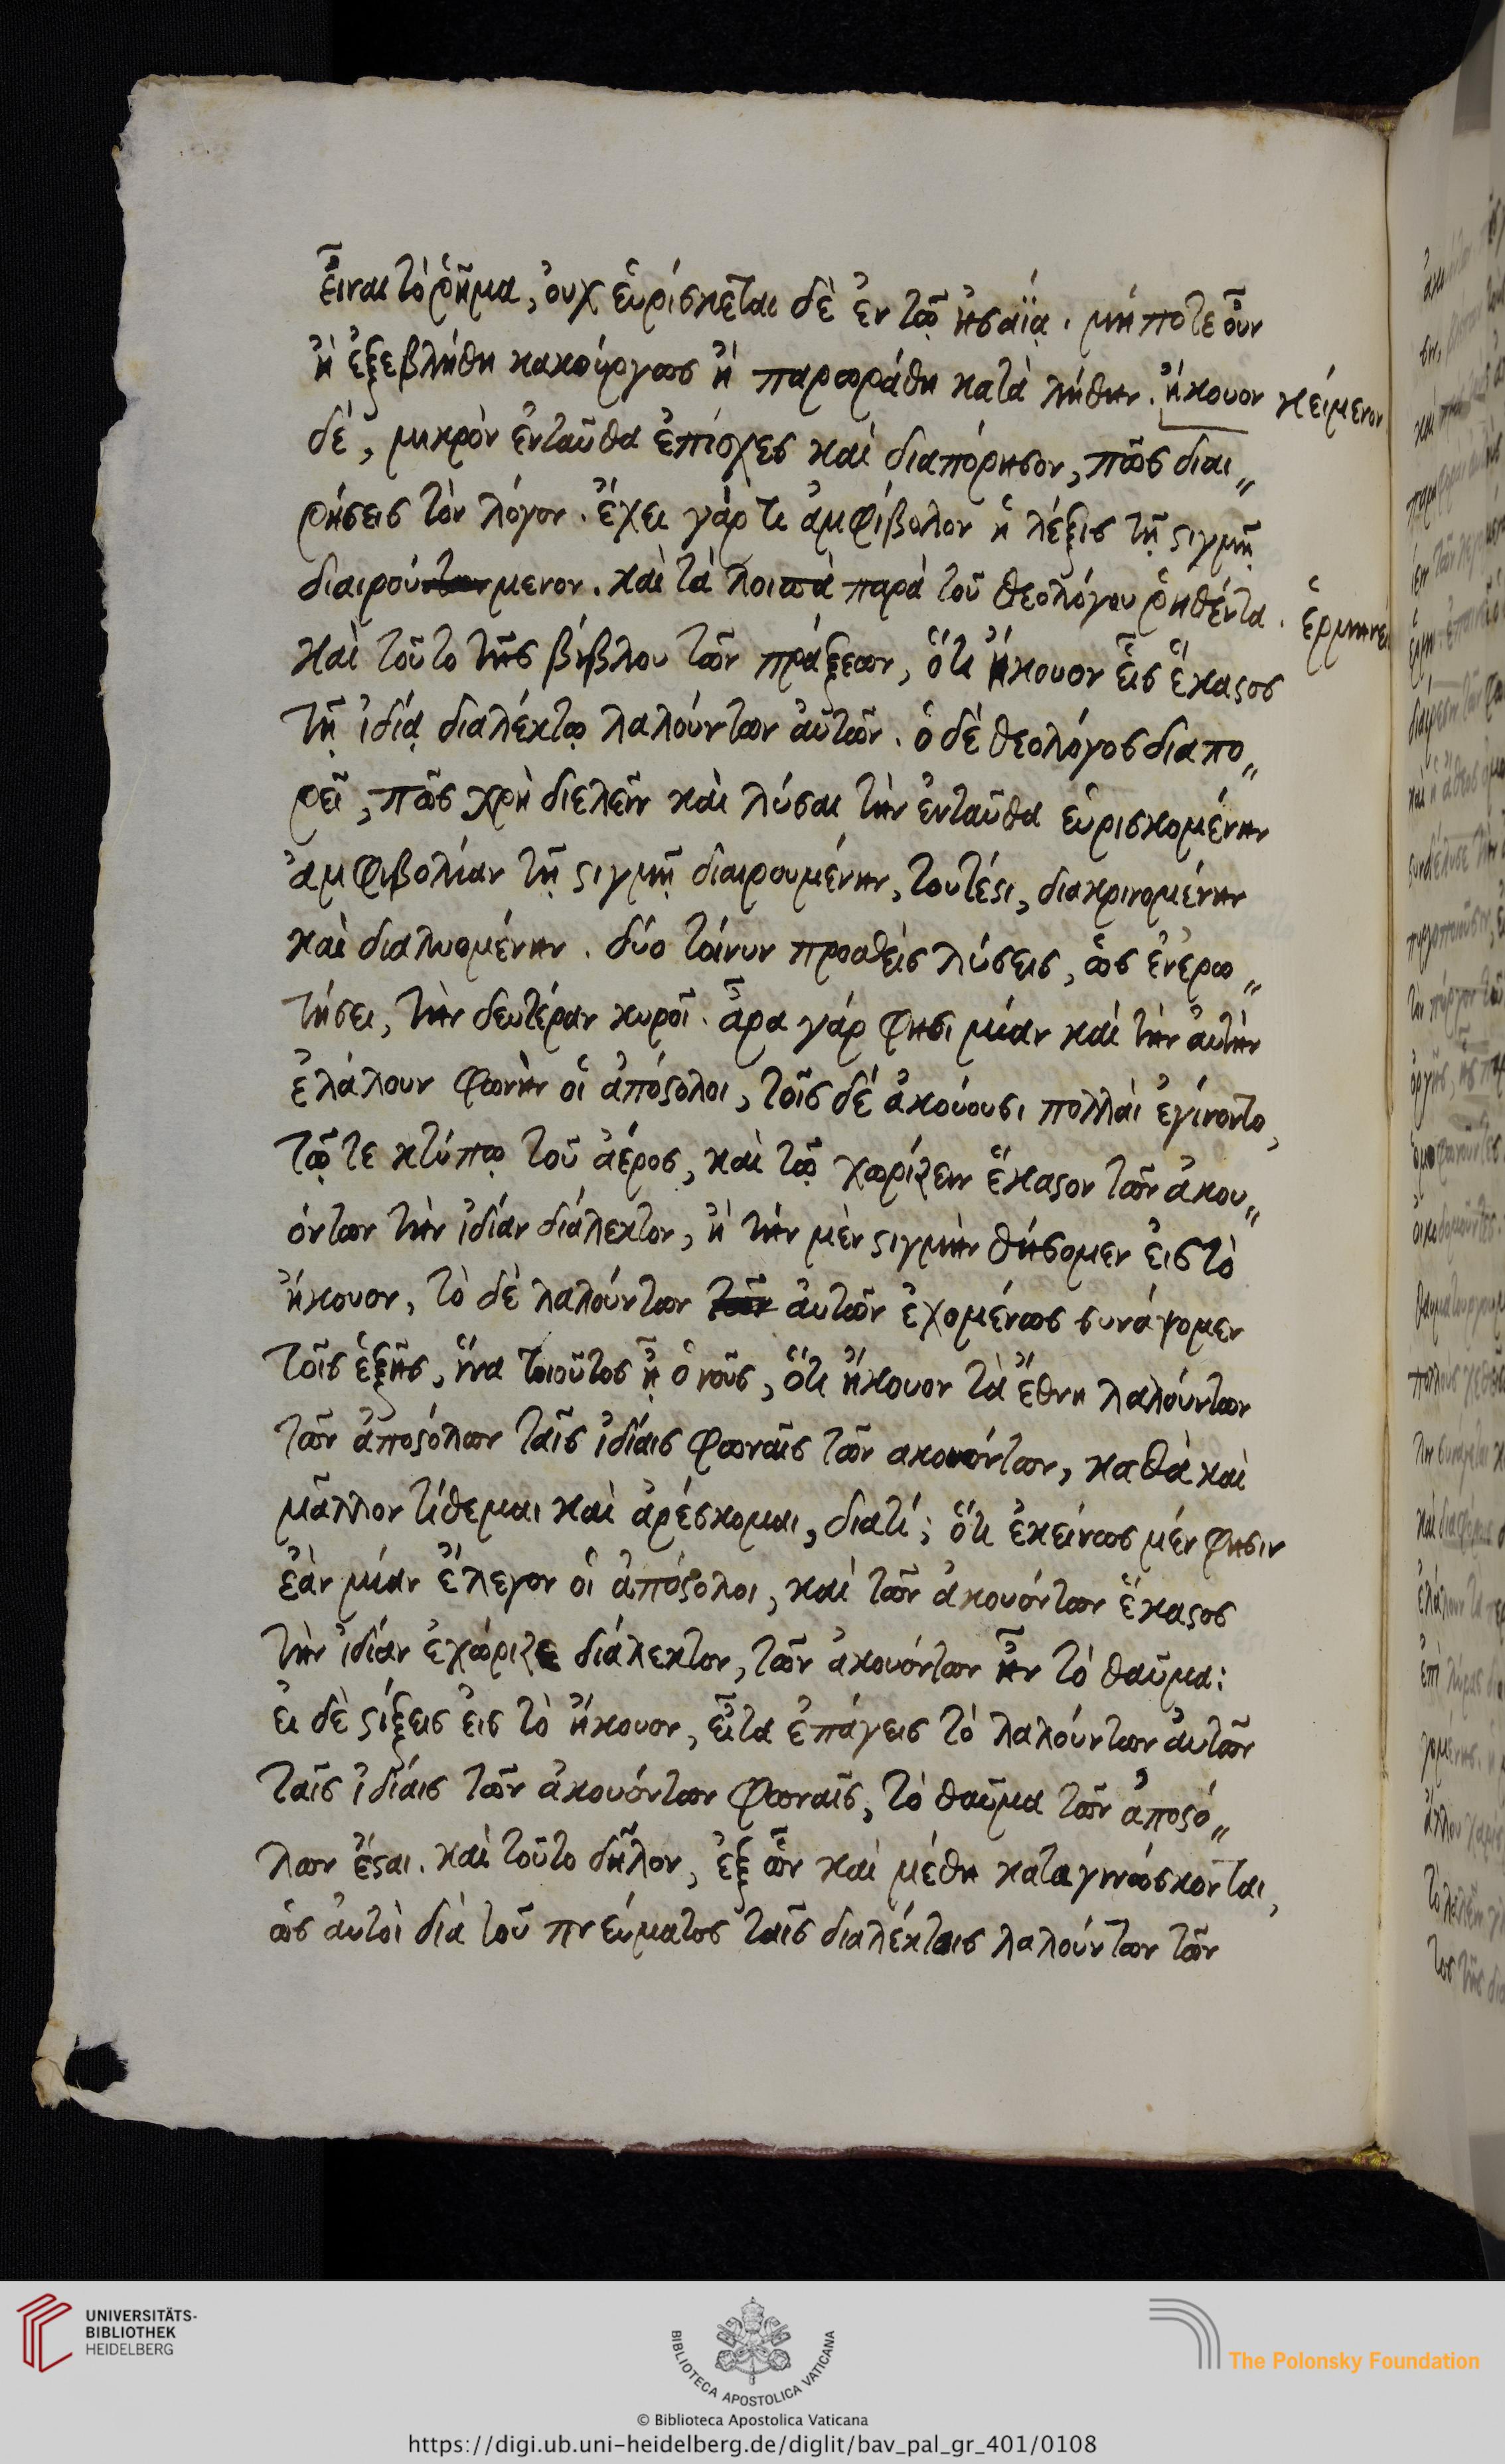 εἶναι τὸ ῥῆμα, οὐχ εὑρίσκεται δὲ ἐν τῷ ἡσαΐᾳ. μήποτε οὖν
ἢ ἐξεβλήθη κακούργως ἢ παρωράθη κατὰ λήθην. ἤκουον κείμενον
δέ, μικρὸν ἐνταῦθα ἐπίσχες καὶ διαπόρησον, πῶς διαι„
ρήσεις τὸν λόγον. ἔχει γάρ τι ἀμφίβολον ἡ λέξις τῇ στιγμῇ
διαιρούμενον. καὶ τὰ λοιπὰ παρὰ τοῦ θεολόγου ῥηθέντα. ἑρμηνεί
καὶ τοῦτο τῆς βίβλου τῶν πράξεων, ὅτι ἤκουον εἷς ἕκαστος
τῇ ἰδίᾳ διαλέκτῳ λαλούντων αὐτῶν. ὁ δὲ θεολόγος διαπο„
ρεῖ, πῶς χρὴ διελεῖν καὶ λύσαι τὴν ἐνταῦθα εὑρισκομένην
ἀμφιβολίαν τῇ στιγμῇ διαιρουμένην, τουτέστι, διακρινομένην
καὶ διαλυομένην. δύο τοίνυν προσθεὶς λύσεις, ὡς ἐνερω„
τήσει, τὴν δευτέραν κυροῖ. ἆρα γάρ φησι μίαν καὶ τὴν αὐτὴν
ἐλάλουν φωνὴν οἱ ἀπόστολοι, τοῖς δὲ ἀκούουσι πολλαὶ ἐγίνοντο,
τῷ τε κτύπῳ τοῦ ἀέρος, καὶ τῷ χωρίζειν ἕκαστον τῶν ἀκου„
όντων τὴν ἰδίαν διάλεκτον, ἢ τὴν μὲν στιγμὴν θήσομεν εἰς τὸ
ἤκουον, τὸ δὲ λαλούντων αὐτῶν ἐχομένως συνάψομεν
τοῖς ἑξῆς, ἵνα τοιοῦτος ᾖ ὁ νοῦς, ὅτι ἤκουον τὰ ἔθνη λαλούντων
τῶν ἀποστόλων ταῖς ἰδίαις φωναῖς τῶν ακουόντων, καθὰ καὶ
μᾶλλον τίθεμαι καὶ ἀρέσκομαι, διατί; ὅτι ἐκείνως μέν φησιν
ἐὰν μίαν ἔλεγον οἱ ἀπόστολοι, καὶ τῶν ἀκουόντων ἕκαστος
τὴν ἰδίαν ἐχώριζε διάλεκτον, τῶν ἀκουόντων ἦν τὸ θαῦμα:
ει δὲ στίξεις εἰς τὸ ἤκουον, εἶτα ἐπάγεις τὸ λαλούντων αὐτῶν
ταῖς ἰδίαις τῶν ἀκουόντων φωναῖς, τὸ θαῦμα τῶν ἀποστό„
λων ἔσται. καὶ τοῦτο δῆλον, ἐξ ὧν καὶ μέθη καταγινώσκονται,
ὡς αὐτοὶ διὰ τοῦ πνεύματος ταῖς διαλέκτοις λαλούντων τῶν
UNIVERSITÄTS-
BIBLIOTHEK
HEIDELBERG
BIBLIOTECA APOSTOLICA VATICANA
The Polonsky Foundation
© Biblioteca Apostolica Vaticana
https://digi.ub.uni-heidelberg.de/diglit/bav_pal_gr_401/0108